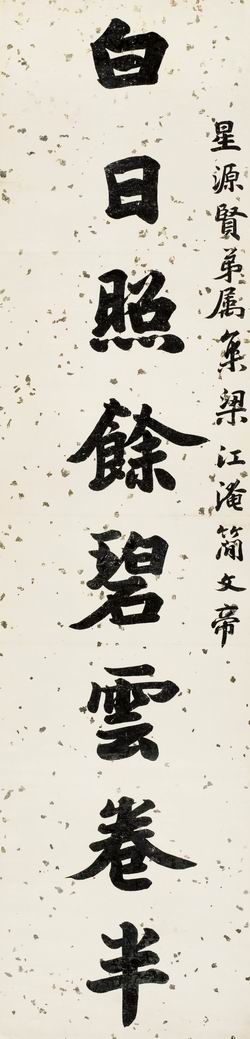 星源賢弟属集梁江淹簡文帝
白日照餘碧雲卷半